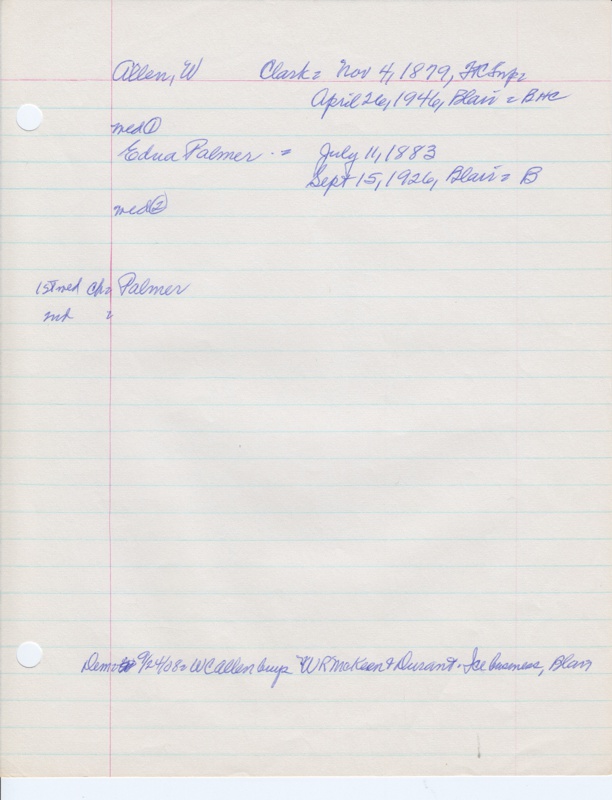 Allen, W Clark = Nov 4, 1879, FtC Twp =
April 26, 1946, Blair = BHC
med ①
Edna Palmer = July 11, 1883
Sept 15, 1926, Blair = B
med ②
1st med ch = Palmer
2nd =
9/24/08 = WC Allen buys W R McKeen & Durant - Ice business, Blair